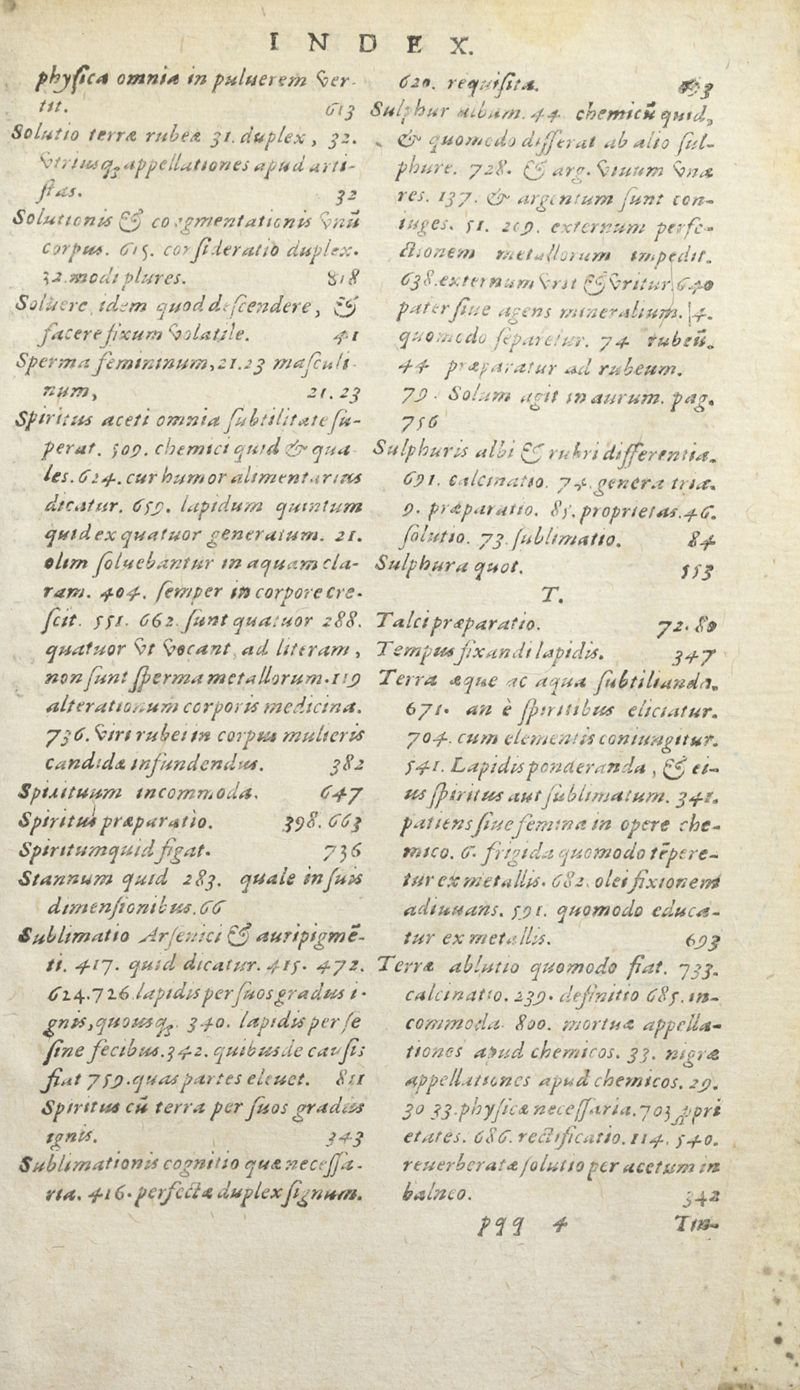 INDEX.
physica omnia in puluerem ver-
tit. 613
Solutio terræ rubeæ 31. duplex, 32.
vtriusq; appellationes apud arti-
stas. 32
Solutionis & coagmentationis vnũ
corpus. 615. cõsideratio duplex.
32. modi plures. 818
Soluere idem quod descendere, &
facere fixum volatile. 41
Sperma femininum, 21. 23 masculi-
num, 21. 23
Spiritus aceti omnia subtilitate su-
perat. 509. chemici quid & qua
les. 624. cur humor alimentarius
dicatur. 659. lapidum quintum
quid ex quatuor generatum. 21.
olim soluebantur in aquam cla-
ram. 404. semper in corpore cre-
scit. 551. 662. sunt quatuor 288.
quatuor vt vocant ad literam,
non sunt sperma metallorum. 119
alterationum corporis medicina.
736. viri rubei in corpus mulieris
candidæ infundendus. 382
Spirituum incommoda. 647
Spiritus præparatio. 398. 663
Spiritum quid figat. 736
Stannum quid 283. quale in suis
dimensionibus. 66
Sublimatio Arsenici & auripigmẽ-
ti. 417. quid dicatur. 415. 472.
624. 726 lapidis per suos gradus i-
gnis, quousq; 340. lapidis per se
sine fecibus. 342. quibus de causis
fiat 759. quas partes eleuet. 811
Spiritus cũ terra per suos gradus
ignis. 343
Sublimationis cognitio quæ necessa-
ria. 416. perfectæ duplex signum.
620. requisita.
Sulphur album. 44. chemicũ quid,
& quomodo differat ab alio sul-
phure. 728. & arg. viuum vna
res. 137. & argentum sunt con-
iuges. 51. 209. externum perfe-
ctionem metallorum impedit.
638. externum vrit & vritur 640
pater siue agens mineralium. 14.
quomodo separetur. 74 rubeũ.
44 præparatur ad rubeum.
79. Solum agit in aurum. pag.
756
Sulphuris albi & rubri differentia.
691. calcinatio. 74. genera tria.
9. præparatio. 85. proprietas. 46.
solutio. 73. sublimatio. 84
Sulphura quot. 553
T.
Talci præparatio. 72. 80
Tempus fixandi lapidis. 347
Terra æque ac aqua subtilianda.
671. an è spiritibus eliciatur.
704. cum elementis coniungitur.
541. Lapidis ponderanda, & ei-
us spiritus aut sublimatum. 341.
patiens siue femina in opere che-
mico. 6. frigida quomodo tẽpere-
tur ex metallis. 682. olei fixionem
adiuuans. 591. quomodo educa-
tur ex metallis. 693
Terræ ablutio quomodo fiat. 733.
calcinatio. 239. definitio 685. in-
commoda. 800. mortuæ appella-
tiones apud chemicos. 33. nigræ
appellationes apud chemicos. 29.
30 33. physicæ necessaria. 703 ꝓpri
etates. 686. rectificatio. 114. 540.
reuerberatæ solutio per acetum in
balneo. 342
pqq 4 Tin-